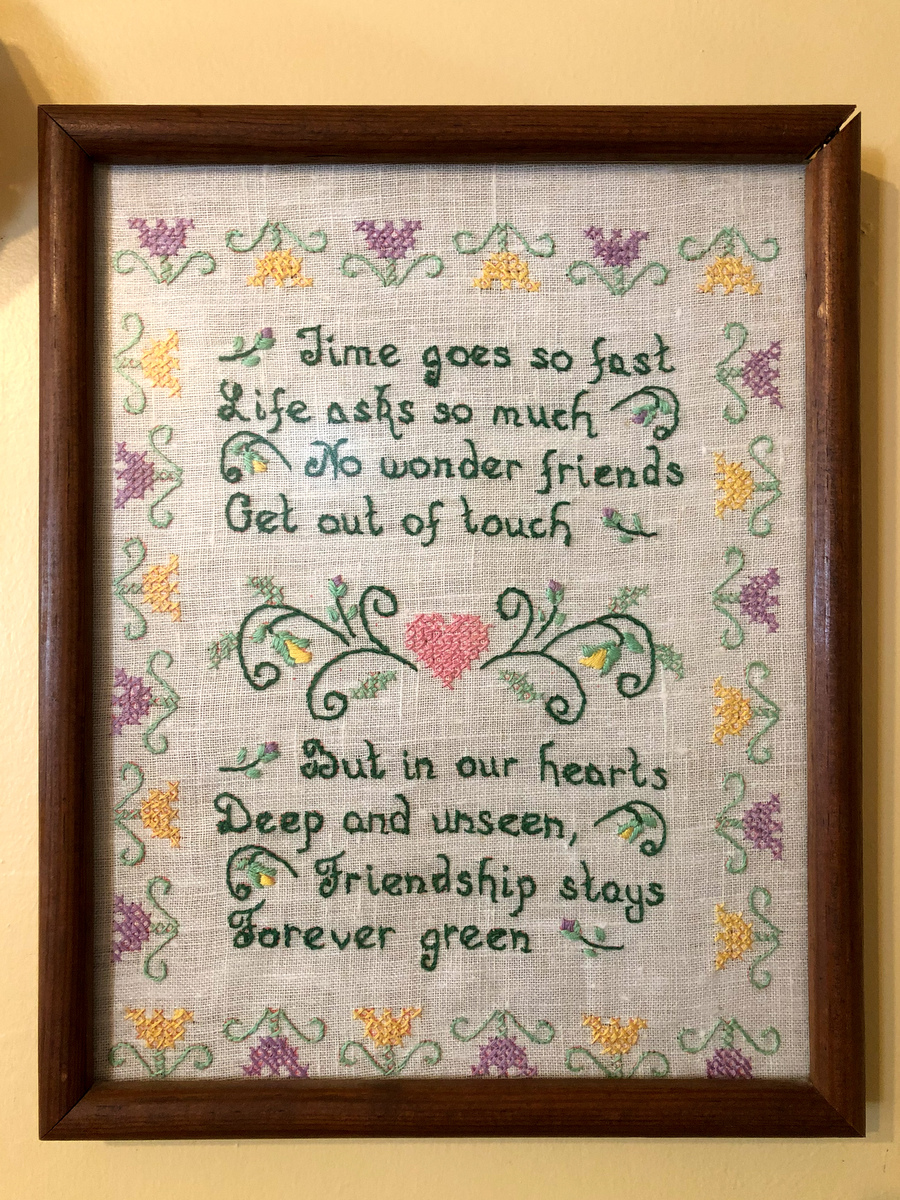 Time goes so fast
Life asks so much
No wonder friends
Get out of touch
But in our hearts
Deep and unseen,
Friendship stays
Forever green